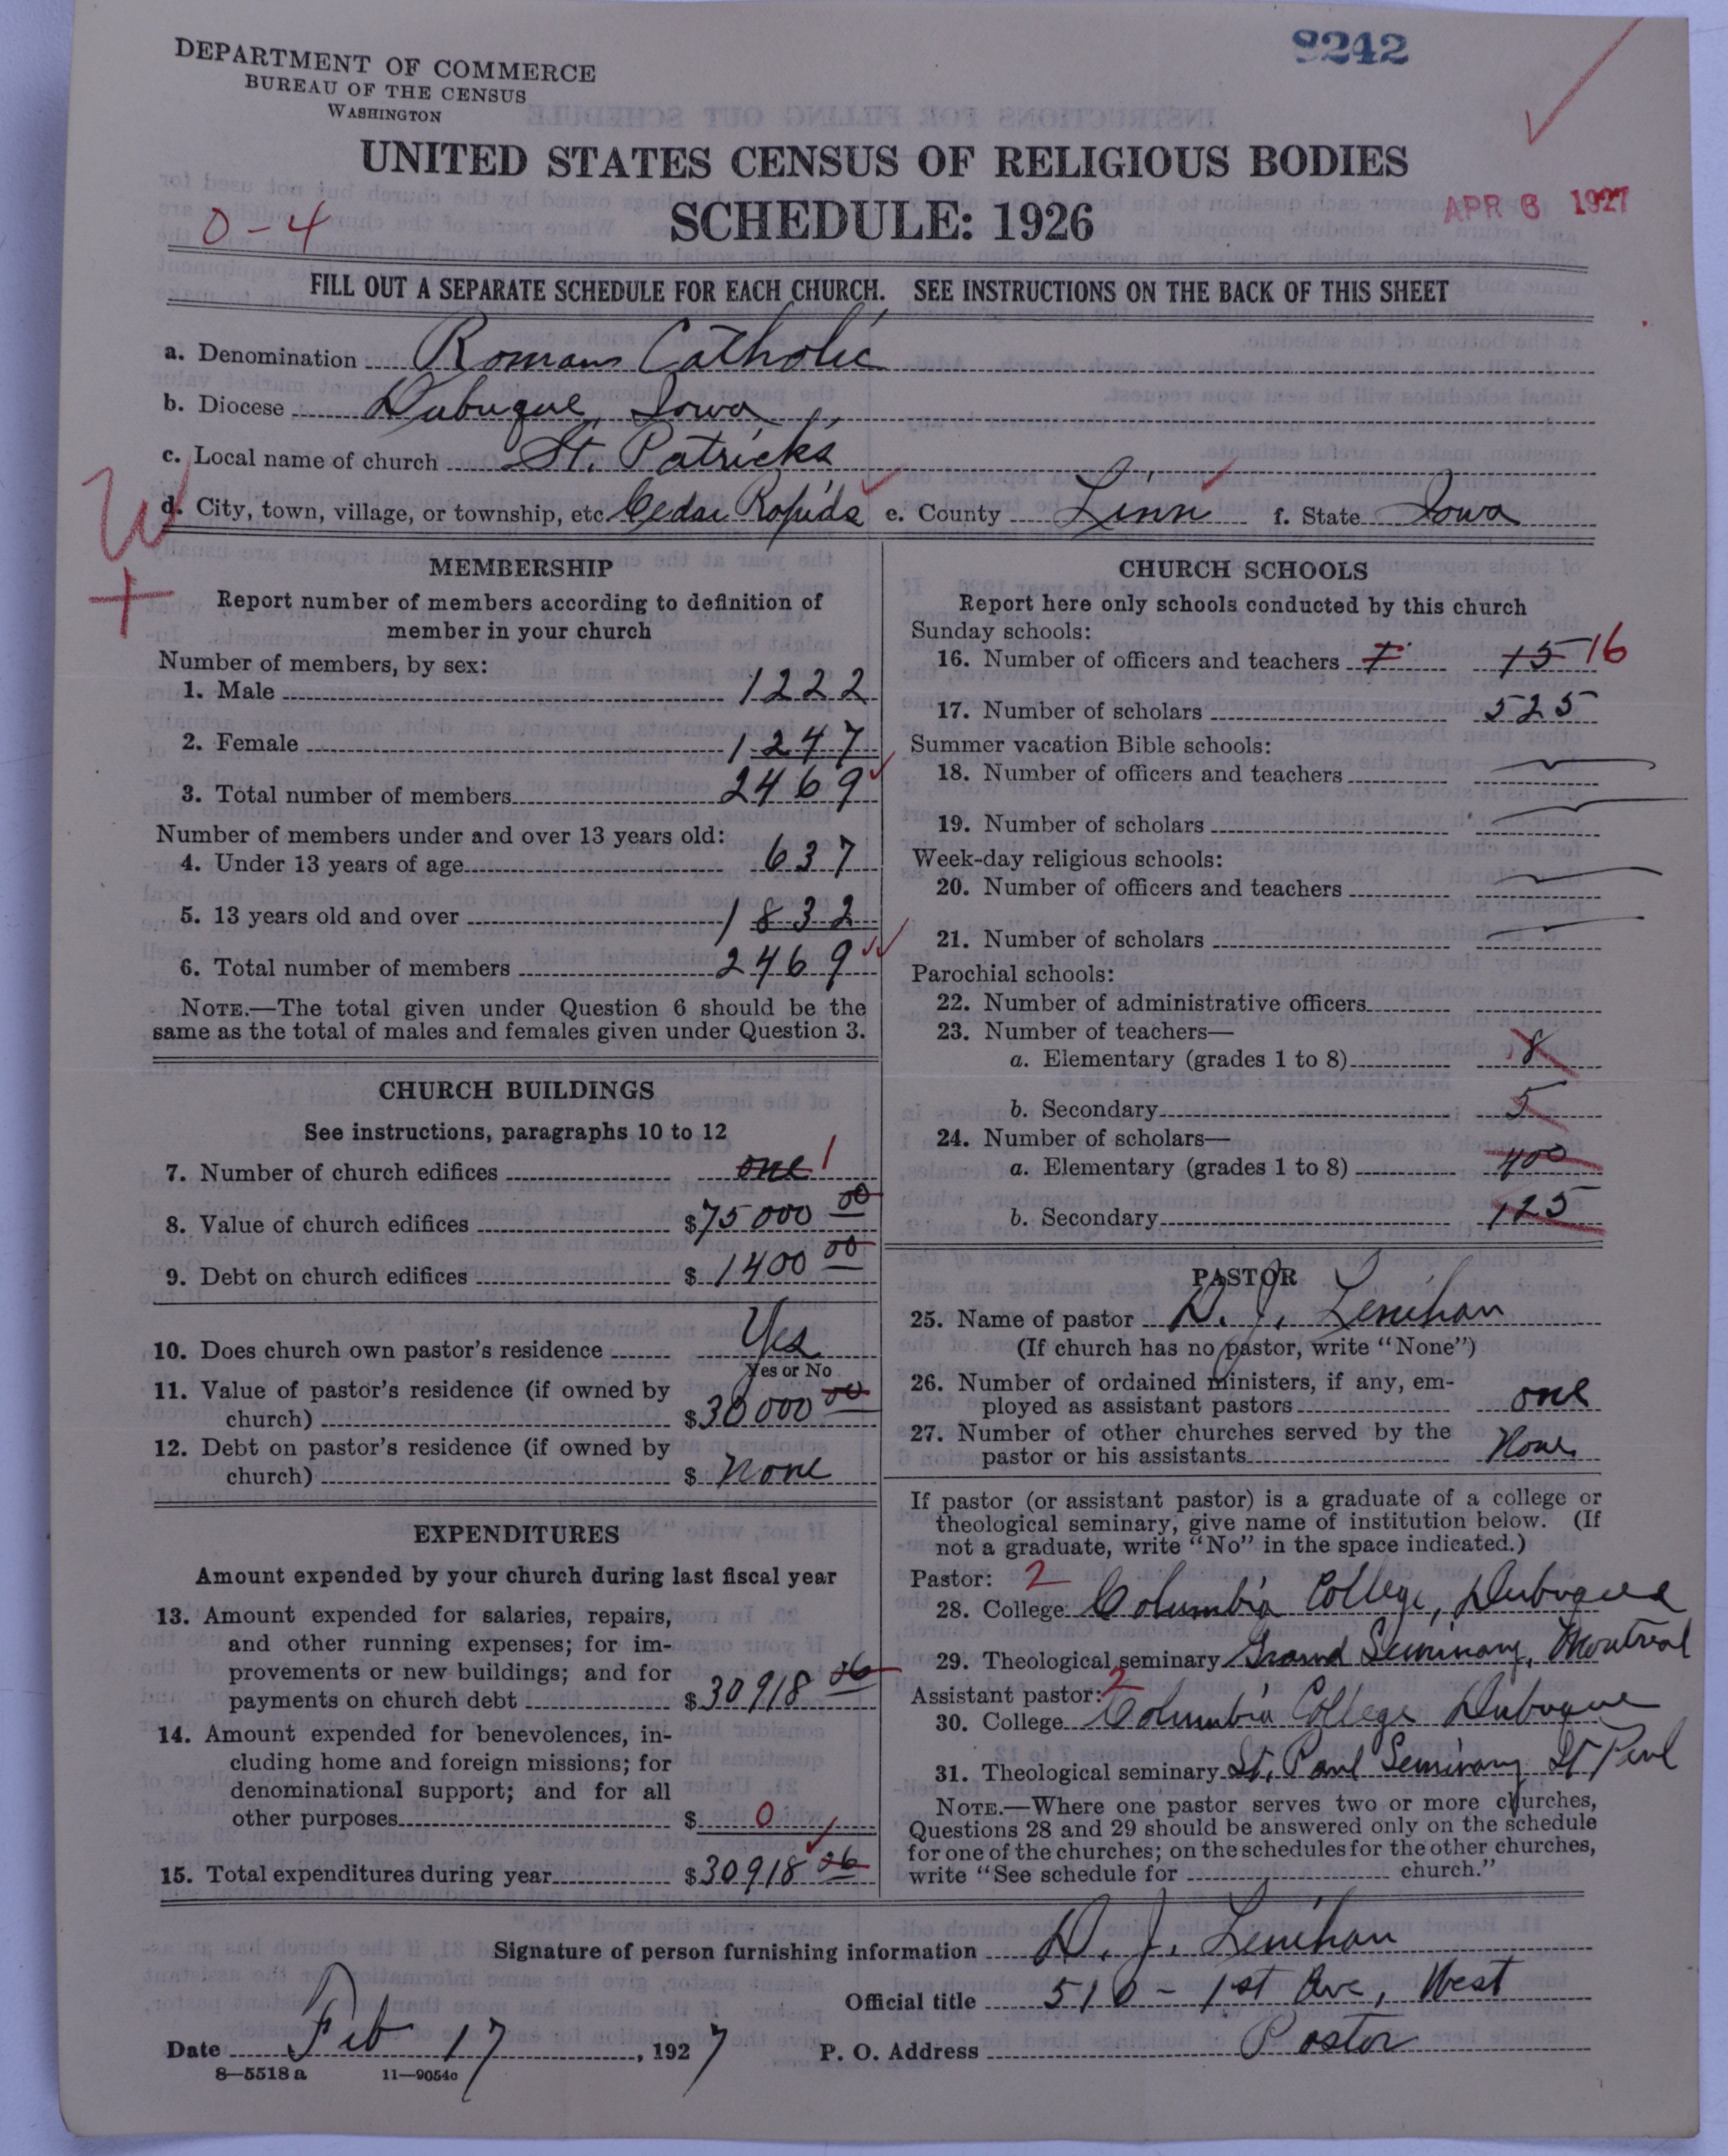 9242
DEPARTMENT OF COMMERCE
BUREAU OF THE CENSUS
WASHINGTON
UNITED STATES CENSUS OF RELIGIOUS BODIES
SCHEDULE: 1926
APR 6 1927
0-4
FILL OUT A SEPARATE SCHEDULE FOR EACH CHURCH. SEE INSTRUCTIONS ON THE BACK OF THIS SHEET
a. Denomination Roman Catholic
b. Diocese Dubuque, Iowa
c. Local name of church St. Patrick's
d. City, town, village, or township, etc. Cedar Rapids e. County Linn f. State Iowa
W
+
MEMBERSHIP
Report number of members according to definition of
member in your church
Number of members, by sex:
1. Male 1222
2. Female 1247
3. Total number of members 2469
Number of members under and over 13 years old:
4. Under 13 years of age 637
5. 13 years old and over 1832
6. Total number of members 2469
NOTE.—The total given under Question 6 should be the
same as the total of males and females given under Question 3.
CHURCH BUILDINGS
See instructions, paragraphs 10 to 12
7. Number of church edifices one 1
8. Value of church edifices $75000 00
9. Debt on church edifices $1400 00
10. Does church own pastor's residence Yes
Yes or No
11. Value of pastor's residence (if owned by
church) $30000 00
12. Debt on pastor's residence (if owned by
church) $ None
EXPENDITURES
Amount expended by your church during last fiscal year
13. Amount expended for salaries, repairs,
and other running expenses; for im-
provements or new buildings; and for
payments on church debt $30918 06
14. Amount expended for benevolences, in-
cluding home and foreign missions; for
denominational support; and for all
other purposes $ 0
15. Total expenditures during year $30918 06
CHURCH SCHOOLS
Report here only schools conducted by this church
Sunday schools:
16. Number of officers and teachers 7 15 16
17. Number of scholars 525
Summer vacation Bible schools:
18. Number of officers and teachers
19. Number of scholars
Week-day religious schools:
20. Number of officers and teachers
21. Number of scholars
Parochial schools:
22. Number of administrative officers
23. Number of teachers—
a. Elementary (grades 1 to 8) 8
b. Secondary 5
24. Number of scholars—
a. Elementary (grades 1 to 8) 400
b. Secondary 125
PASTOR
25. Name of pastor D. J. Lenihan
(If church has no pastor, write "None")
26. Number of ordained ministers, if any, em-
ployed as assistant pastors one
27. Number of other churches served by the
pastor or his assistants None
If pastor (or assistant pastor) is a graduate of a college or
theological seminary, give name of institution below. (If
not a graduate, write "No" in the space indicated.)
Pastor: 2
28. College Columbia College, Dubuque
29. Theological seminary Grand Seminary, Montreal
Assistant pastor: 2
30. College Columbia College Dubuque
31. Theological seminary St. Paul Seminary St Paul
NOTE.—Where one pastor serves two or more churches,
Questions 28 and 29 should be answered only on the schedule
for one of the churches; on the schedules for the other churches,
write "See schedule for church."
Signature of person furnishing information D. J. Lenihan
Official title 510 - 1st Ave, West
Date Feb 17, 1927 P. O. Address Pastor
8—5518 a 11—9054c